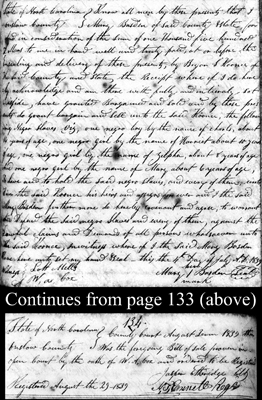 State of North Carolina } Know all men by these presents that I
Onslow County } I Mary Basden of said County & State, for
& in consideration of the sum of one Thousand five hundred
Dollars to me in hand well and truly paid at or before the
sealing and delivery of these presents, by Bryan S Koonce, of
County and State, the Receipt whereof I do here
by acknowledge and am there with fully and entirely, sat
isfied, have granted Bargained and sold and by these pres
ents do grant bargain and sell unto the said Koonce, the follow
ing Negro Slaves, Viz; one negro boy by the name of Charles, about
years of age, one negro girl by the name of Harriet about 10 years
age, one negro girl by the name of Zilpha, about 8 years of age
and one negro girl by the name of Mary about 6 years of age
To have and to hold the said negro slaves, and every of them, unto
him the said Koonce his heirs and assigns forever and I the said
Mary Basden further more do hereby covenant and agree, to warrant
& Defend the said negro Slaves and every of them, against the
lawful claims and Demands of all persons whomsoever unto
the said Koonce, In witness whereof I the said Mary Basden
have unto set my hand & Seal this the 4th Day of July A.D. 1839
Mary X Basden (Seal)
mark
Continues from page 133 (above)
134.
State of North Carolina } County Court August Term 1839
Onslow County } Was the foregoing Bill of sale proven in
open Court by the oath of W. A. Cox and ordered to be Registered
Jasper Etheridge Clk
Registered August the 29 1839